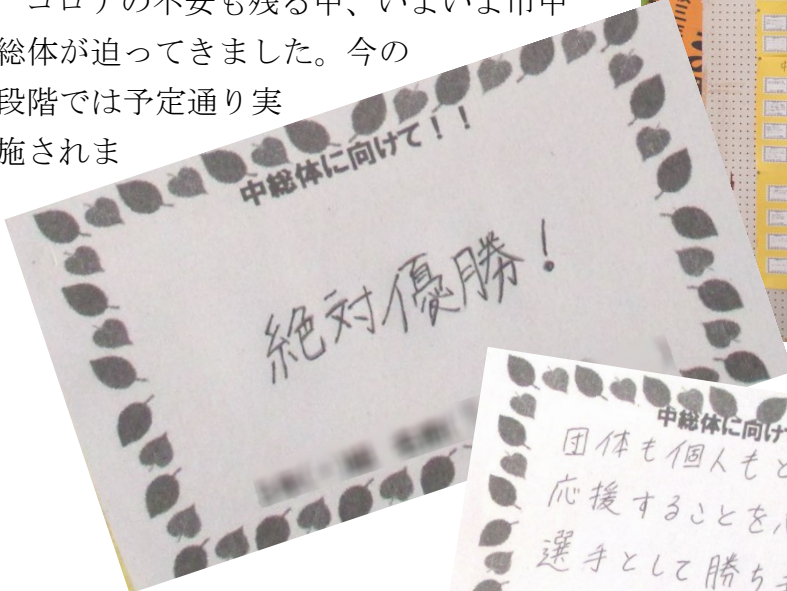 コロナの不安も残る中、いよいよ市中
総体が迫ってきました。今の
段階では予定通り実
施されま
中総体に向けて！！
絶対優勝！
中総体に向け
団体も個人も
応援することを
選手として勝ち